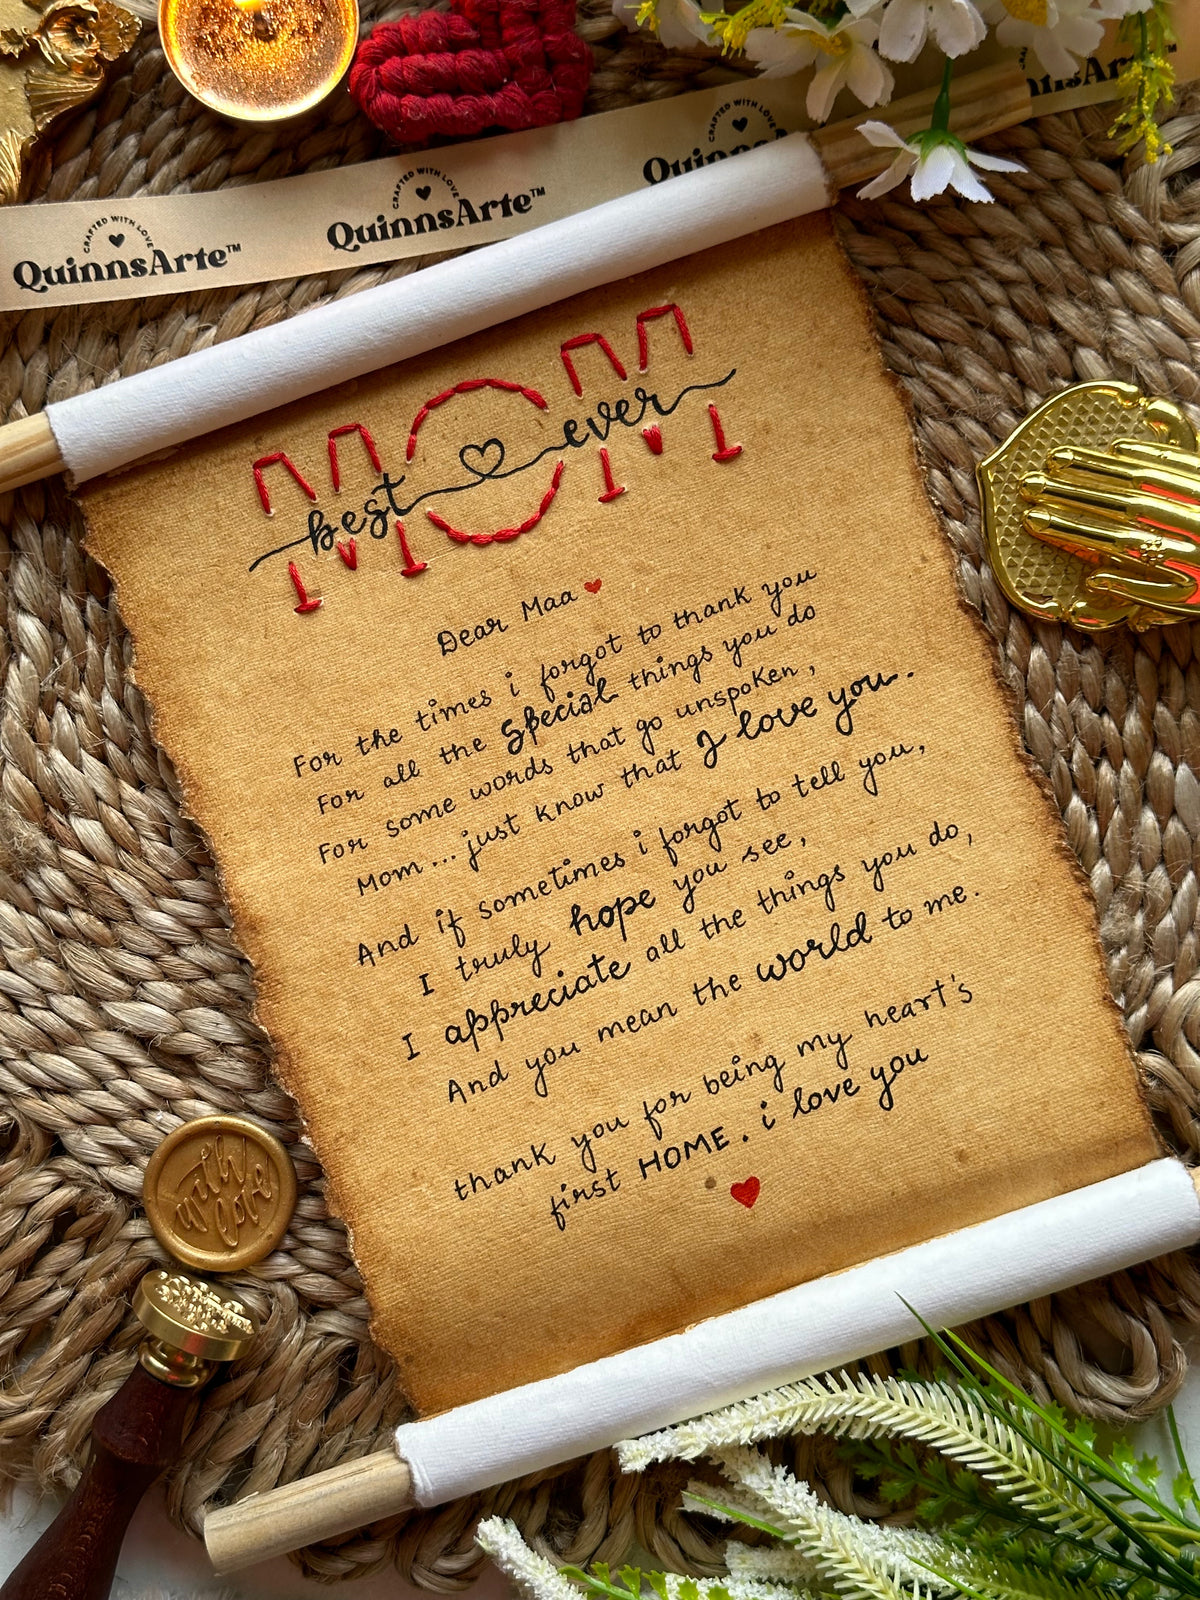 CRAFTED WITH LOVE
QuinnsArte™
CRAFTED WITH LOVE
QuinnsArte™
CRAFTED WITH LOVE
MOM
best ever
Dear Maa
For the times i forgot to thank you
For all the special things you do
For some words that go unspoken,
Mom... just know that I love you.
And if sometimes i forgot to tell you,
I truly hope you see,
I appreciate all the things you do,
And you mean the world to me.
thank you for being my heart's
first HOME. i love you
with
love